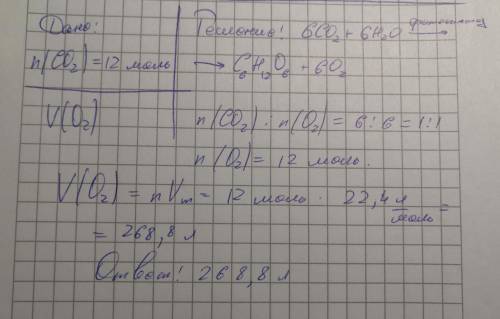 Дано:
n(CO₂) = 12 моль
V(O₂)
Решение: 6CO₂ + 6H₂O фотосинтез →
→ C₆H₁₂O₆ + 6O₂
n(CO₂) : n(O₂) = 6 : 6 = 1:1
n(O₂) = 12 моль.
V(O₂) = nVm = 12 моль · 22,4 л/моль =
= 268,8 л
Ответ: 268,8 л